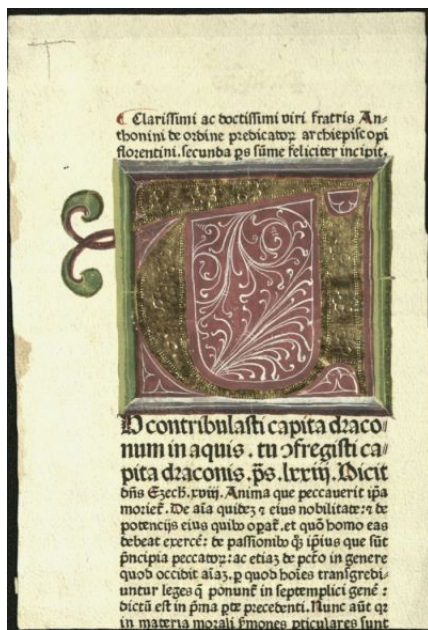 Clarissimi ac doctissimi viri fratris An⸗
thonini de ordine predicatoꝝ archiepiscopi
florentini. secunda ps sūme feliciter incipit.
T
U contribulasti capita draco⸗
num in aquis. tu ↄfregisti ca⸗
pita draconis. p̄s. lxxiij. Dicit
dn̄s Ezech. xviij. Anima que peccauerit ip̄a
morieť. De aīa quidez ⁊ eius nobilitate: ⁊ de
potencijs eius quibꝰ opať. et quō homo eas
debeat exercē: de passionibꝰ q̄ȝ ip̄ius que sūt
pn̄cipia peccatoꝝ: ac etiaz de pctō in genere
quod occidit aīaz. p quod hoīes transgredi⸗
untur leges q̄ ponunť in septemplici genē:
dictū est in p̄ma pte precedenti. Nunc aūt qꝛ
in materia morali ẜmones pticulares sunt